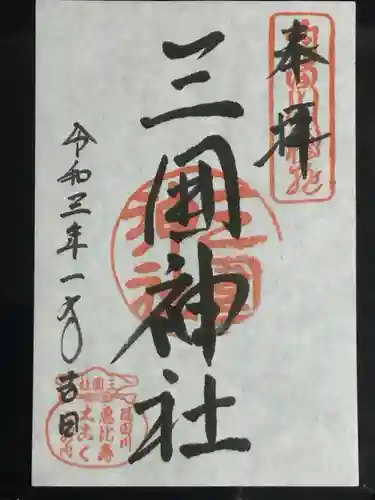 奉拝
三囲神社
令和三年一月吉日
三囲社
隅田川
恵比寿
大こく